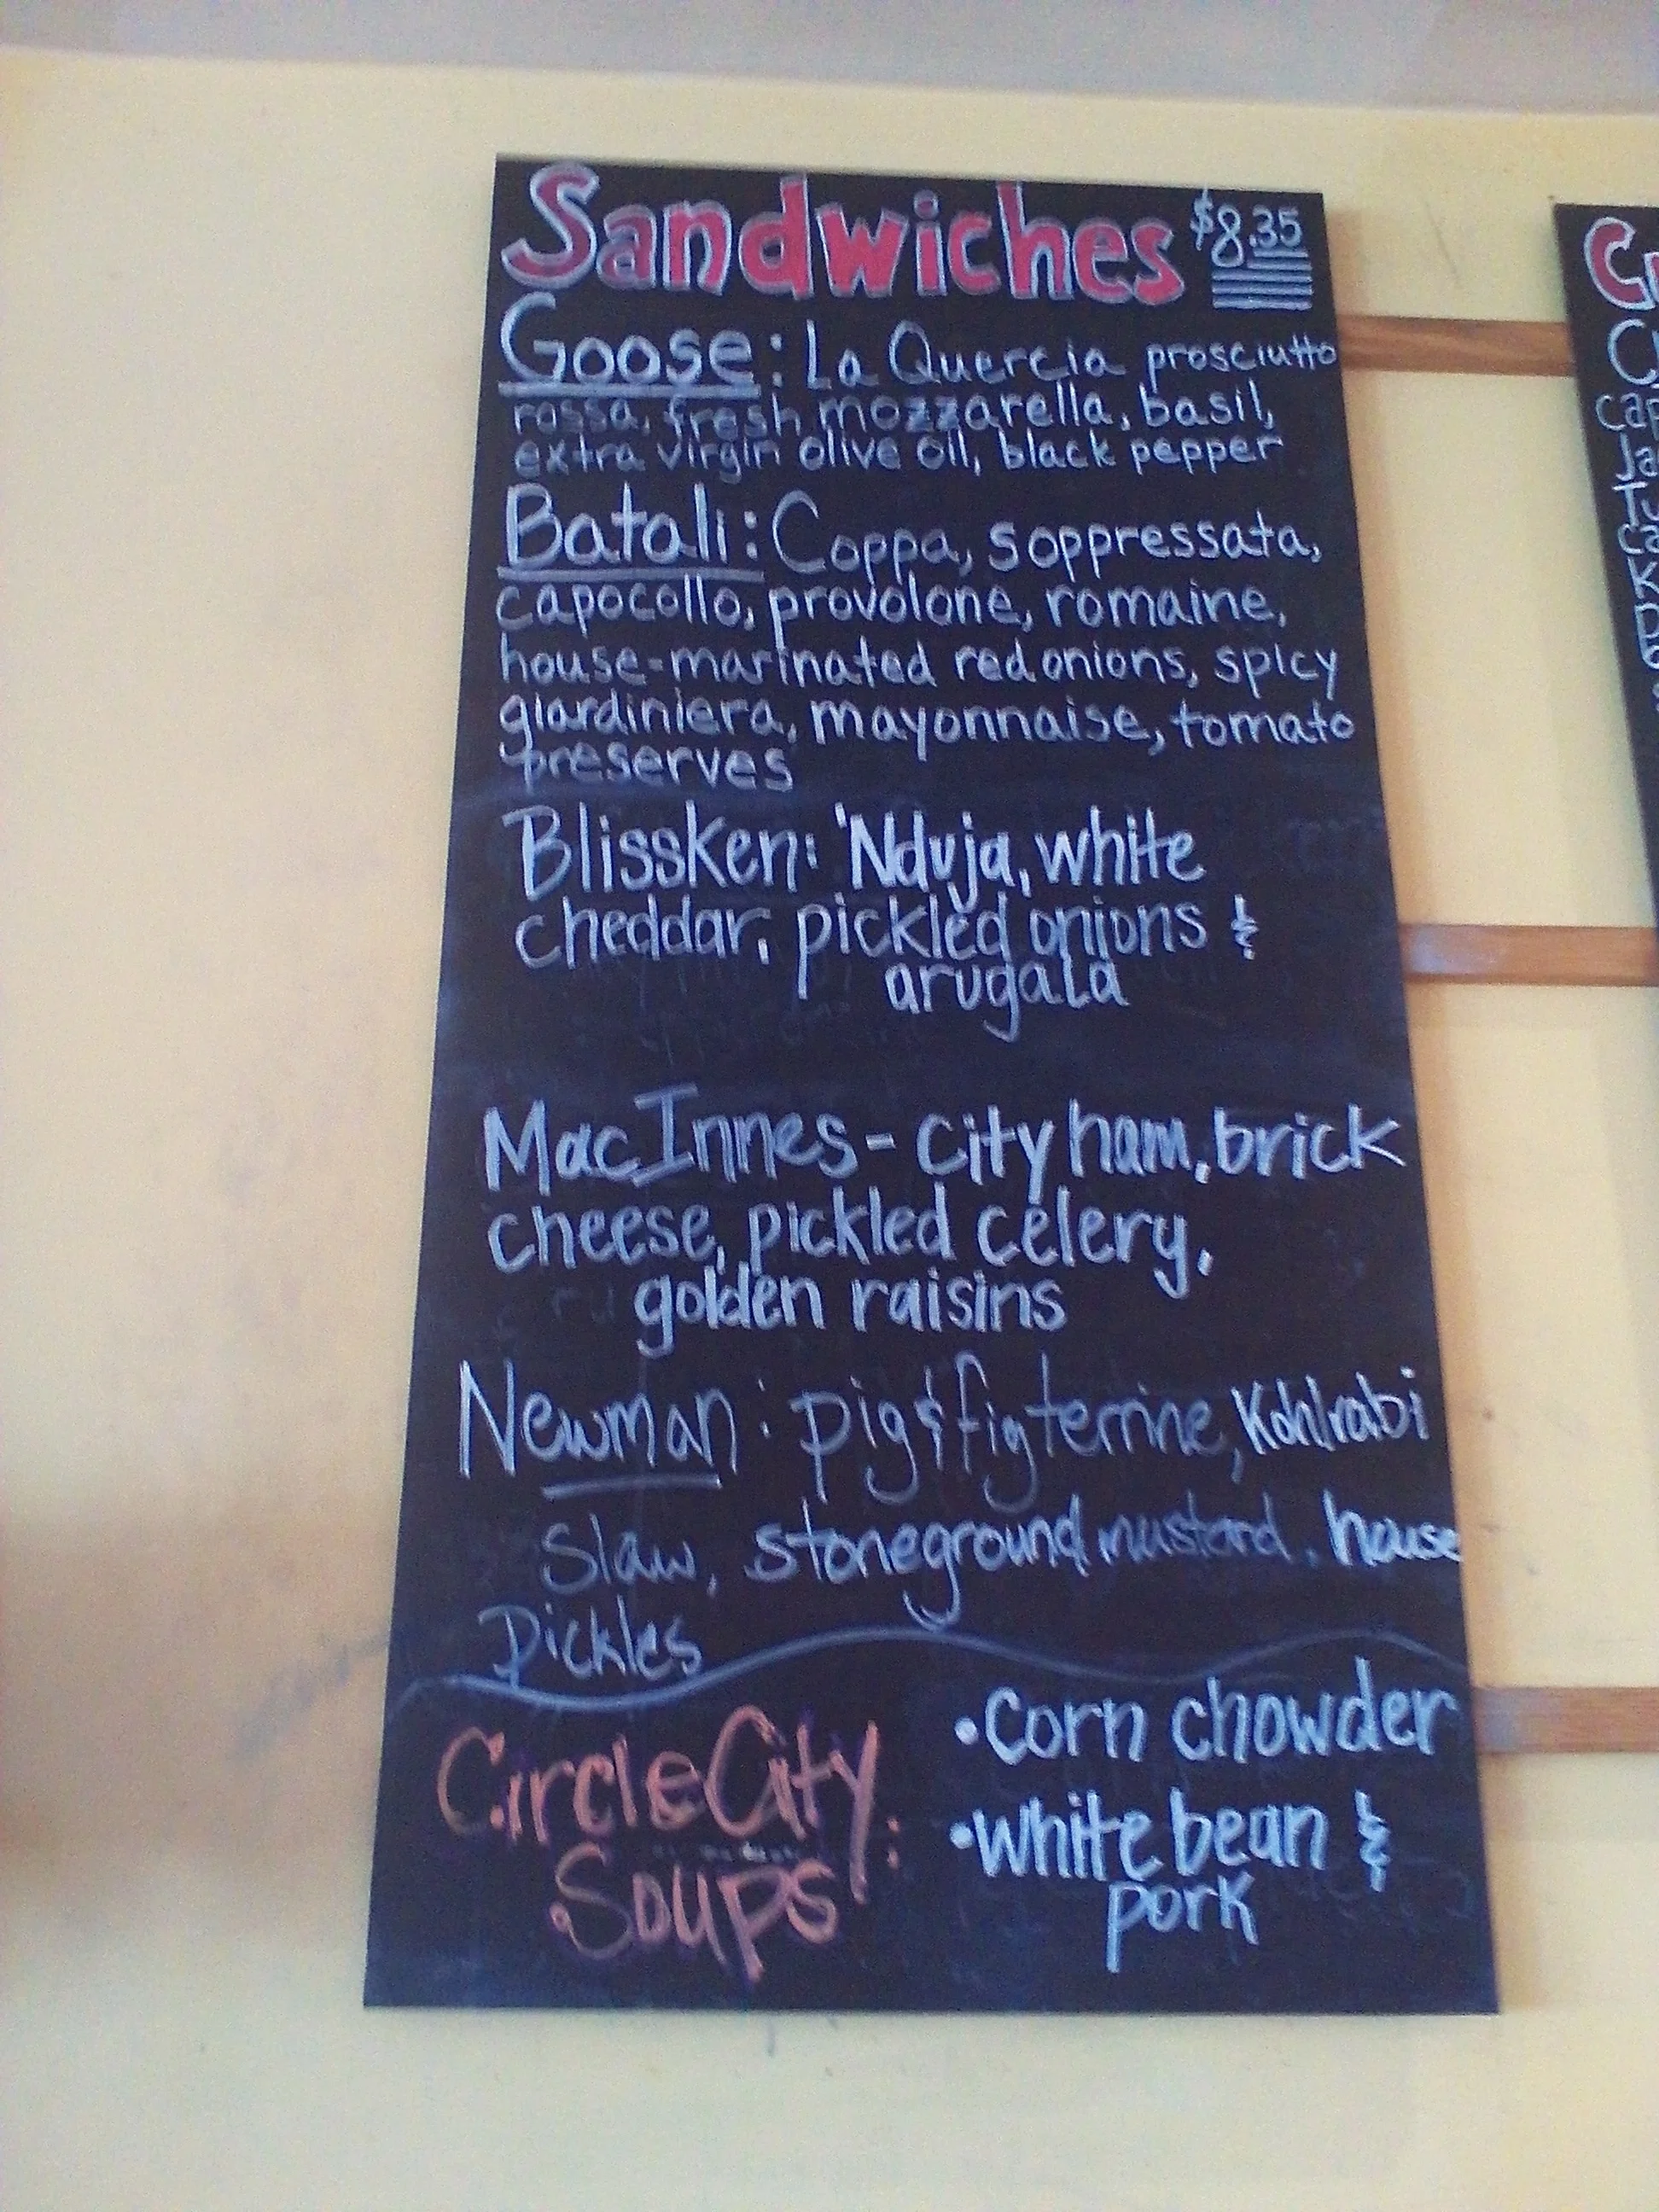 Sandwiches $8.35
Goose: La Quercia prosciutto
rossa, fresh mozzarella, basil,
extra virgin olive oil, black pepper
Batali: Coppa, soppressata,
capocollo, provolone, romaine,
house-marinated red onions, spicy
giardiniera, mayonnaise, tomato
preserves
Blissken: 'Nduja, white
cheddar, pickled onions &
arugala
MacInnes - city ham, brick
cheese, pickled celery,
golden raisins
Newman: pig & fig terrine, Kohlrabi
slaw, stoneground mustard, house
Pickles
Circle City
Soups:
• corn chowder
• white bean &
pork